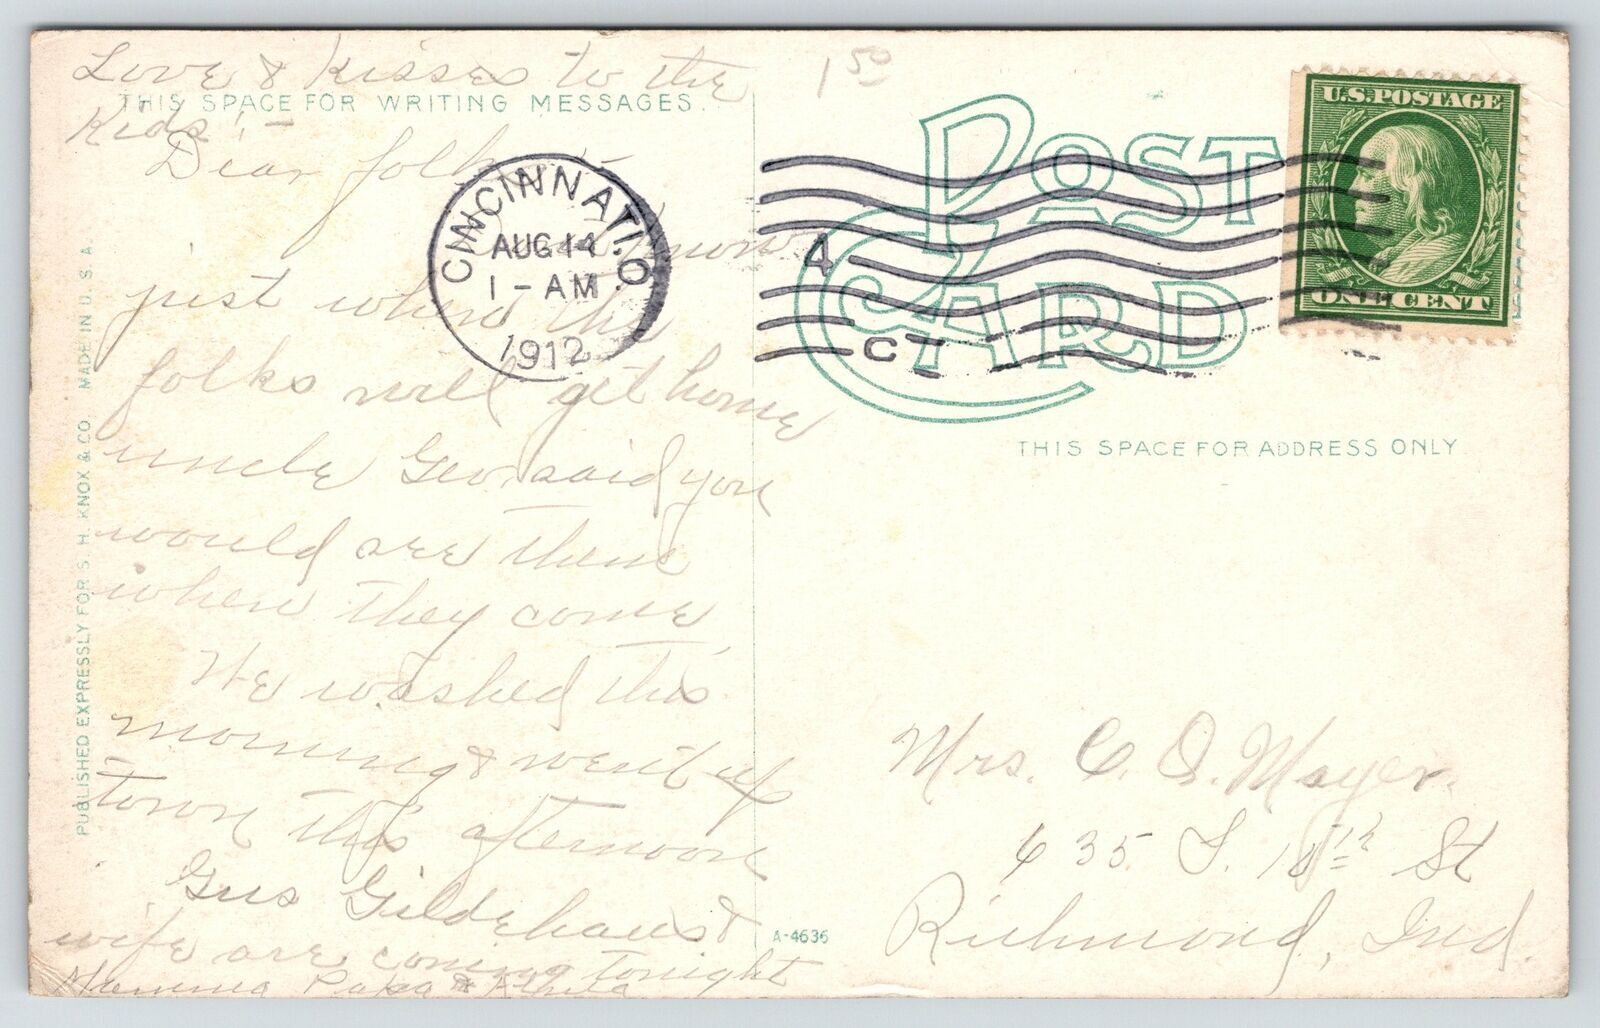 Love & Kisses to the
THIS SPACE FOR WRITING MESSAGES.
Kids :-
Dear folks :-
know
just when the
folks will get home
uncle Geo. said you
would are them
when they come
We washed this
morning & went up
town this afternoon
Gus Gildehaus &
wife are coming tonight
Mamma Papa &
PUBLISHED EXPRESSLY FOR S. H. KNOX & CO. MADE IN U. S. A.
CINCINNATI. O.
AUG 14
1 - AM
1912
1 50
4
C
POST CARD
U.S. POSTAGE
ONE CENT
THIS SPACE FOR ADDRESS ONLY
Mrs. C. O. Mayer.
635 S. 10th St
Richmond, Ind.
A-4636